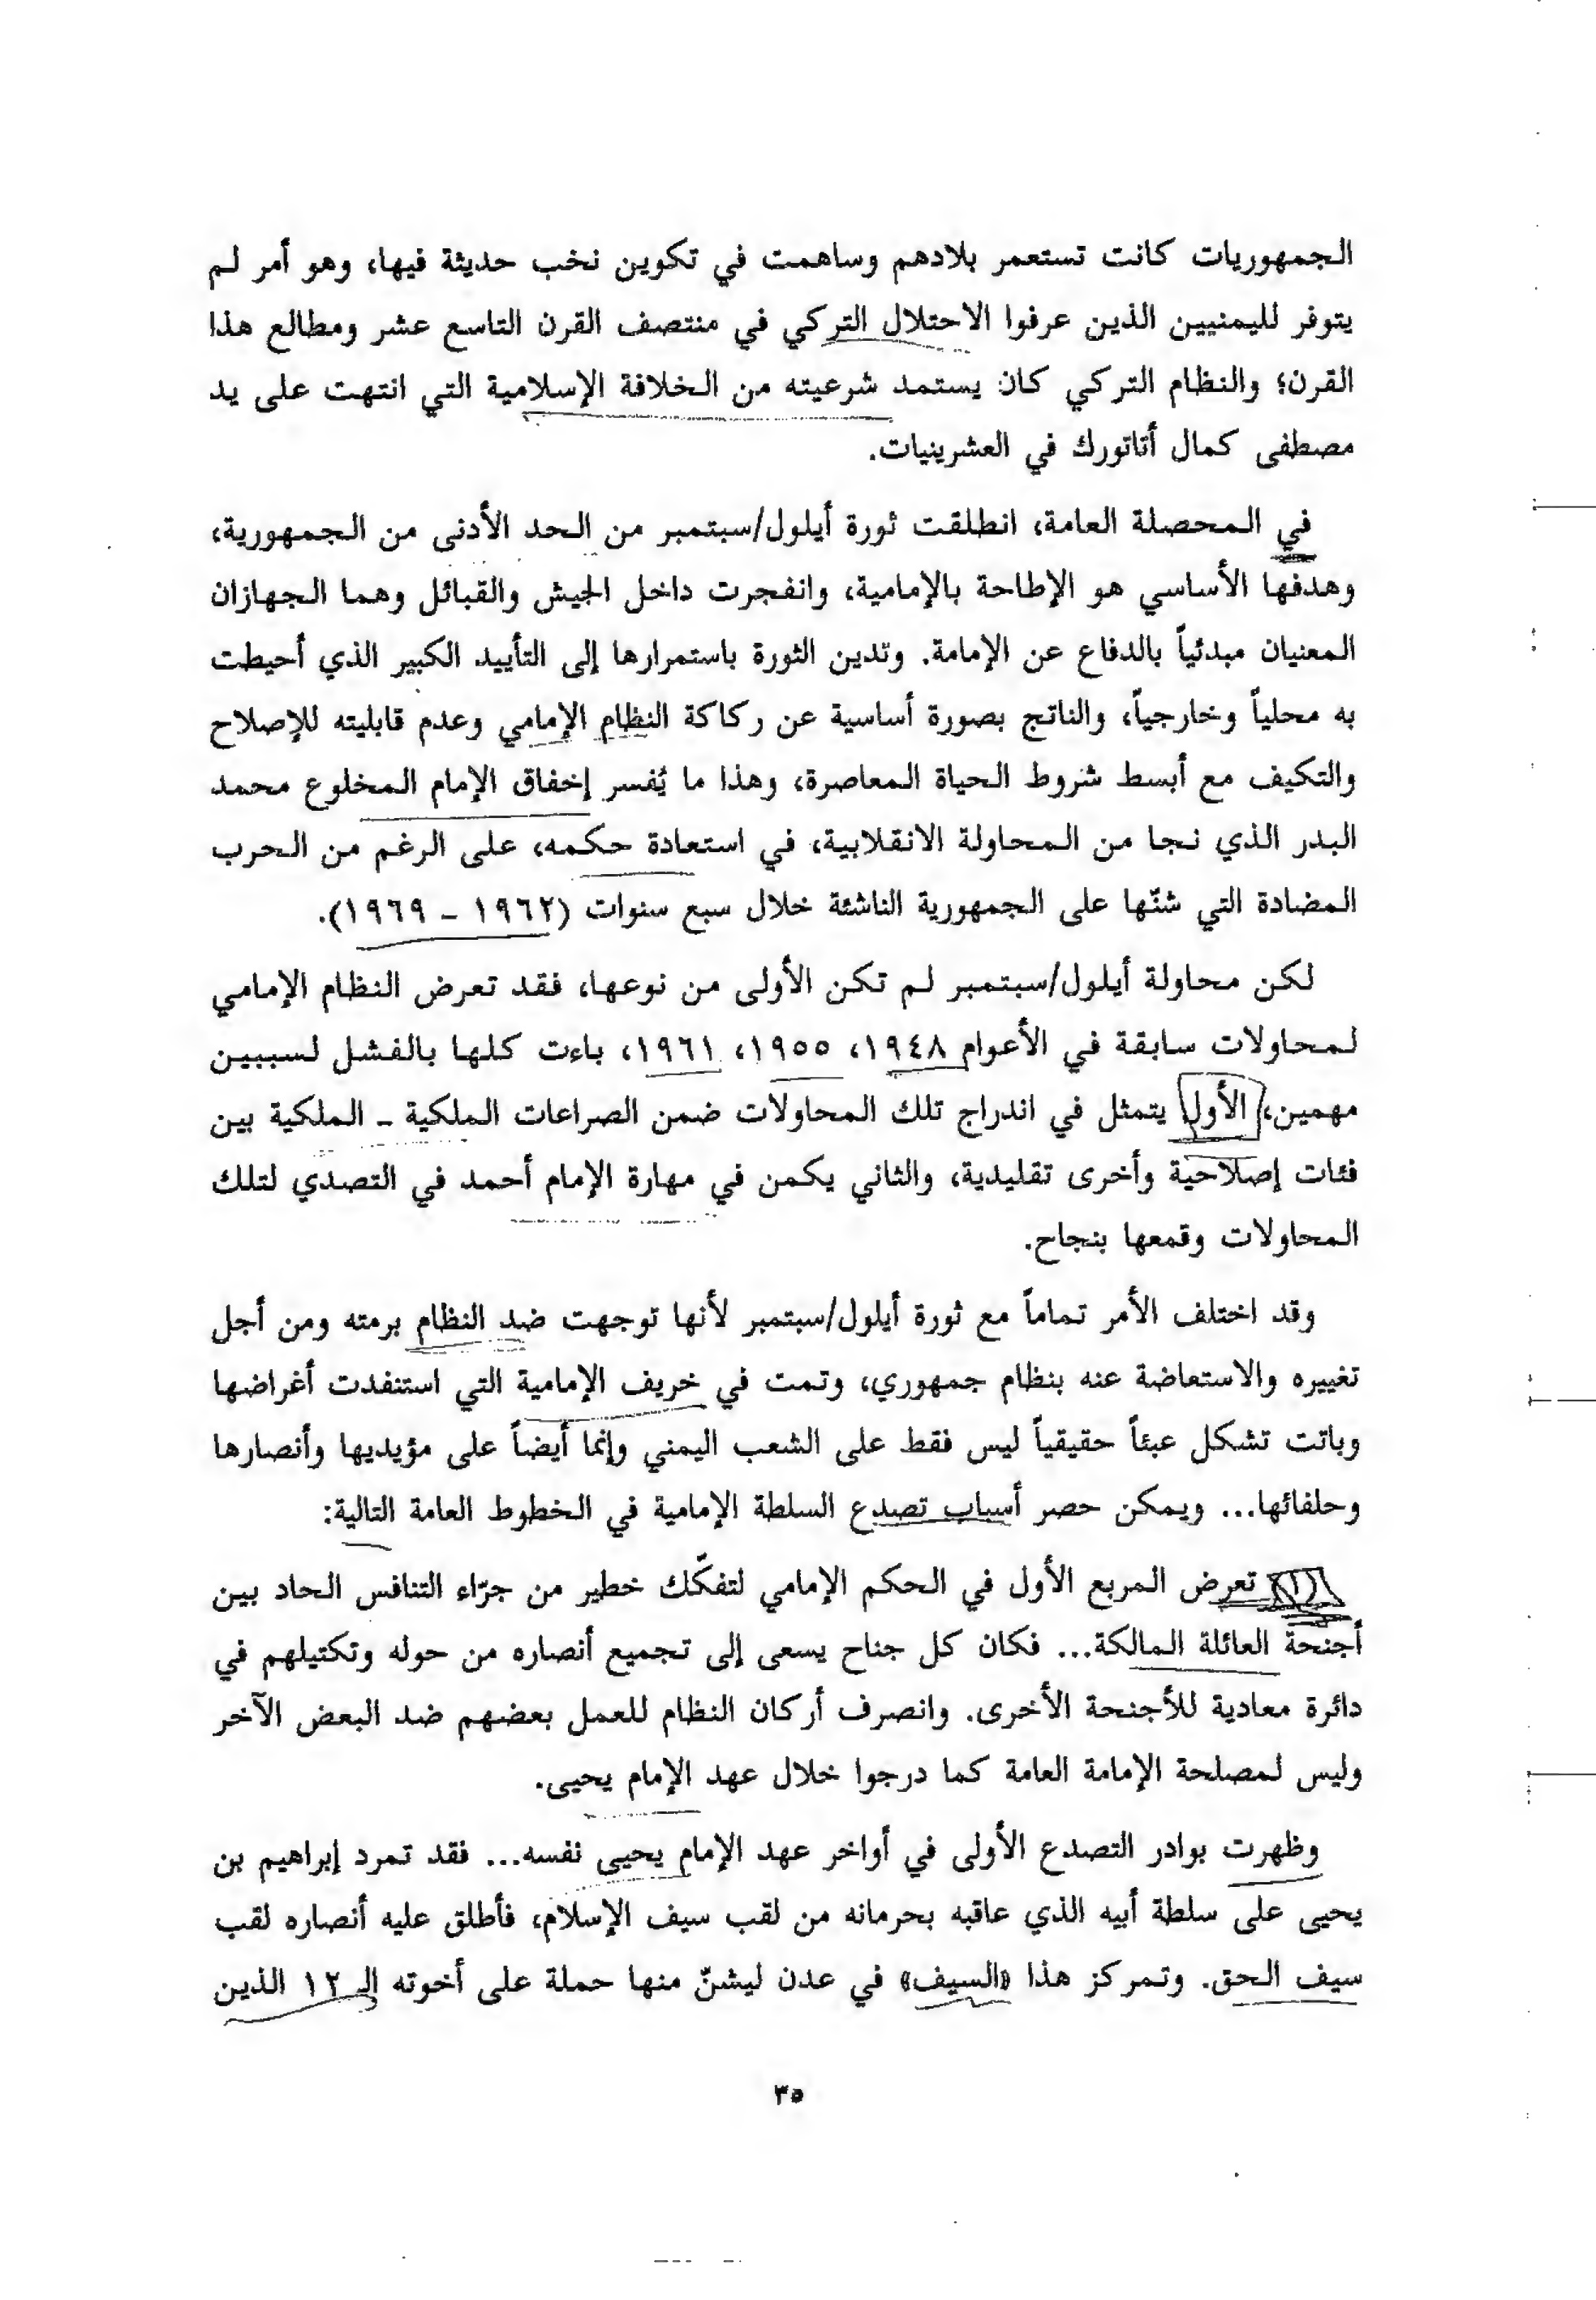 الجمهوريات كانت تستعمر بلادهم وساهمت في تكوين نخب حديثة فيها، وهو أمر لم
يتوفر لليمنيين الذين عرفوا الاحتلال التركي في منتصف القرن التاسع عشر ومطالع هذا
القرن؛ والنظام التركي كان يستمد شرعيته من الخلافة الإسلامية التي انتهت على يد
مصطفى كمال أتاتورك في العشرينيات.
في المحصلة العامة، انطلقت ثورة أيلول/سبتمبر من الحد الأدنى من الجمهورية،
وهدفها الأساسي هو الإطاحة بالإمامية، وانفجرت داخل الجيش والقبائل وهما الجهازان
المعنيان مبدئياً بالدفاع عن الإمامة. وتدين الثورة باستمرارها إلى التأييد الكبير الذي أحيطت
به محلياً وخارجياً، والناتج بصورة أساسية عن ركاكة النظام الإمامي وعدم قابليته للإصلاح
والتكيف مع أبسط شروط الحياة المعاصرة، وهذا ما يُفسر إخفاق الإمام المخلوع محمد
البدر الذي نجا من المحاولة الانقلابية، في استعادة حكمه، على الرغم من الحرب
المضادة التي شنّها على الجمهورية الناشئة خلال سبع سنوات (١٩٦٢ - ١٩٦٩).
لكن محاولة أيلول/سبتمبر لم تكن الأولى من نوعها، فقد تعرض النظام الإمامي
لمحاولات سابقة في الأعوام ١٩٤٨، ١٩٥٥، ١٩٦١، باءت كلها بالفشل لسببين
مهمين، الأول يتمثل في اندراج تلك المحاولات ضمن الصراعات الملكية - الملكية بين
فئات إصلاحية وأخرى تقليدية، والثاني يكمن في مهارة الإمام أحمد في التصدي لتلك
المحاولات وقمعها بنجاح.
وقد اختلف الأمر تماماً مع ثورة أيلول/سبتمبر لأنها توجهت ضد النظام برمته ومن أجل
تغييره والاستعاضة عنه بنظام جمهوري، وتمت في خريف الإمامية التي استنفدت أغراضها
وباتت تشكل عبئاً حقيقياً ليس فقط على الشعب اليمني وإنما أيضاً على مؤيديها وأنصارها
وحلفائها... ويمكن حصر أسباب تصدع السلطة الإمامية في الخطوط العامة التالية:
(١) تعرض المربع الأول في الحكم الإمامي لتفكّك خطير من جرّاء التنافس الحاد بين
أجنحة العائلة المالكة... فكان كل جناح يسعى إلى تجميع أنصاره من حوله وتكتيلهم في
دائرة معادية للأجنحة الأخرى. وانصرف أركان النظام للعمل بعضهم ضد البعض الآخر
وليس لمصلحة الإمامة العامة كما درجوا خلال عهد الإمام يحيى.
وظهرت بوادر التصدع الأولى في أواخر عهد الإمام يحيى نفسه... فقد تمرد إبراهيم بن
يحيى على سلطة أبيه الذي عاقبه بحرمانه من لقب سيف الإسلام، فأطلق عليه أنصاره لقب
سيف الحق. وتمركز هذا «السيف» في عدن ليشنّ منها حملة على أخوته الـ ١٢ الذين
٣٥